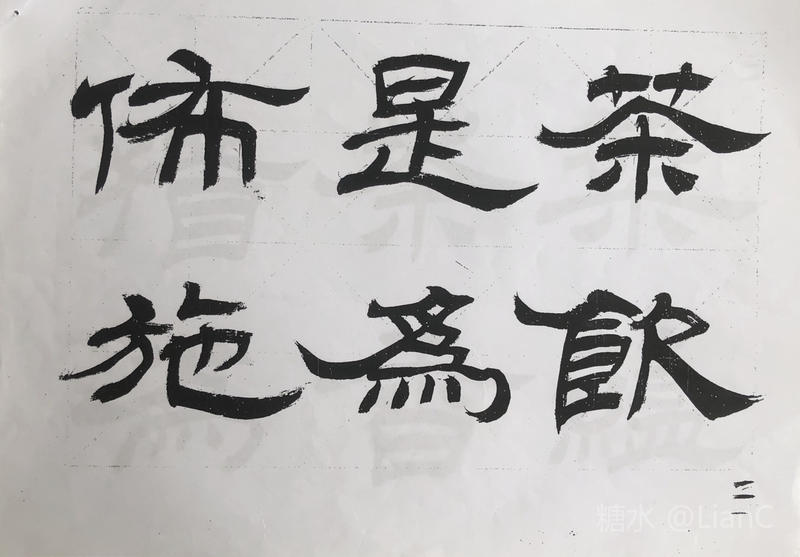 茶飲
是為
佈施
三
糖水 @LianC